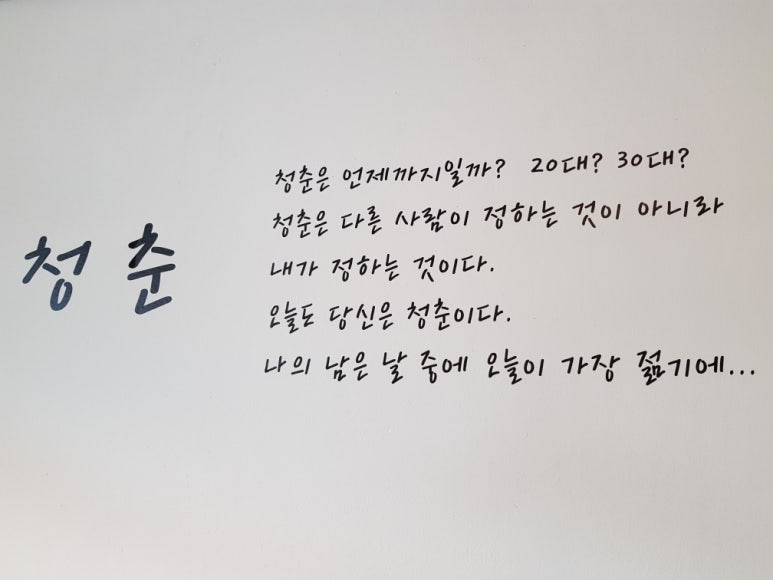 청춘
청춘은 언제까지일까? 20대? 30대?
청춘은 다른 사람이 정하는 것이 아니라
내가 정하는 것이다.
오늘도 당신은 청춘이다.
나의 남은 날 중에 오늘이 가장 젊기에...